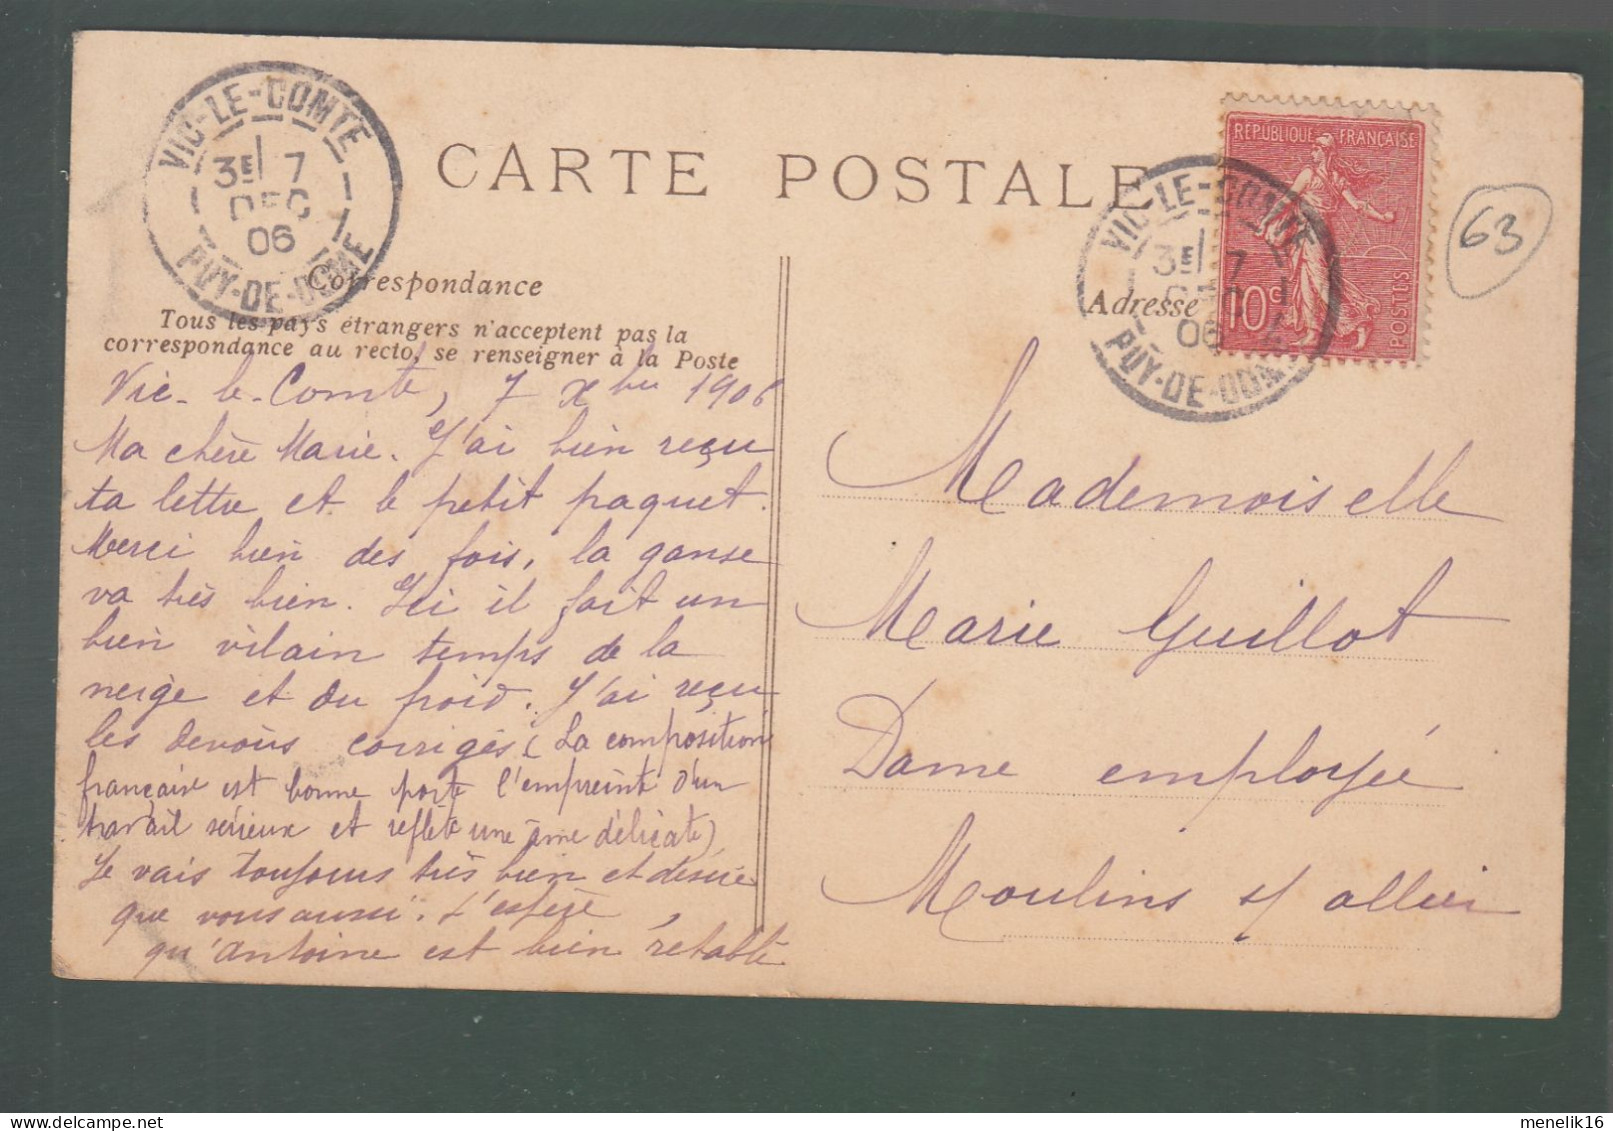 CARTE POSTALE
VIC-LE-COMTE
3E 7
DEC
06
PUY-DE-DOME
VIC-LE-COMTE
3E 7
DEC
06
PUY-DE-DOME
REPUBLIQUE FRANÇAISE
10c
POSTES
63
Correspondance
Tous les pays étrangers n'acceptent pas la
correspondance au recto, se renseigner à la Poste
Vic-le-Comte, 7 Xbre 1906
Ma chère Marie. J'ai bien reçu
ta lettre et le petit paquet.
Merci bien des fois, la ganse
va très bien. Ici il fait un
bien vilain temps de la
neige et du froid. J'ai reçu
les devoirs corrigés (La composition
française est bonne porte l'empreinte d'un
travail sérieux et reflète une âme délicate)
Je vais toujours très bien et désire
que vous aussi. J'espère
qu'Antoine est bien rétabli
Adresse
Mademoiselle
Marie Guillot
Dame employée
Moulins s/ allier
menelik16